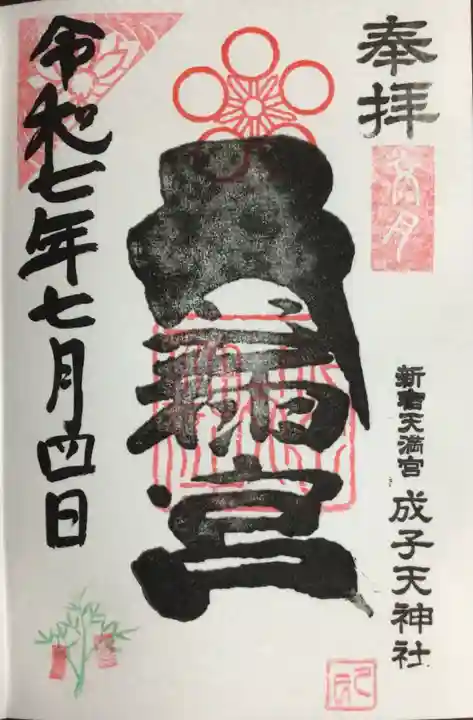 奉拝
文月
新宿天満宮 成子天神社
宮
令和七年七月四日